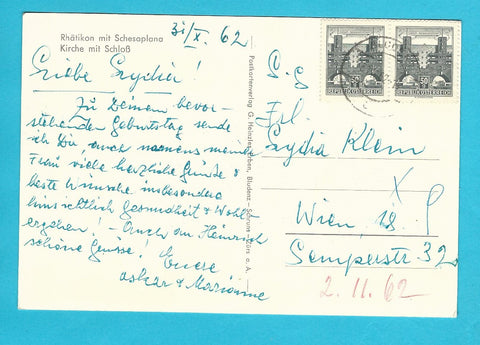 Rhätikon mit Schesaplana
Kirche mit Schloß
31/X. 62
Liebe Lydia!
Zu Deinem bevor-
stehenden Geburtstag sende
ich Dir, auch namens meiner
Frau viele herzliche Grüße &
beste Wünsche insbesondere
hinsichtlich Gesundheit & Wohl-
ergehen! Auch an Heinrich
schöne Grüsse! Euere
Oskar & Marianne
Postkartenverlag G. Heinzle, Bludenz
REPUBLIK ÖSTERREICH
50
REPUBLIK ÖSTERREICH
50
Frl.
Lydia Klein
Wien, 18.
Semperstr 32
2. 11. 62